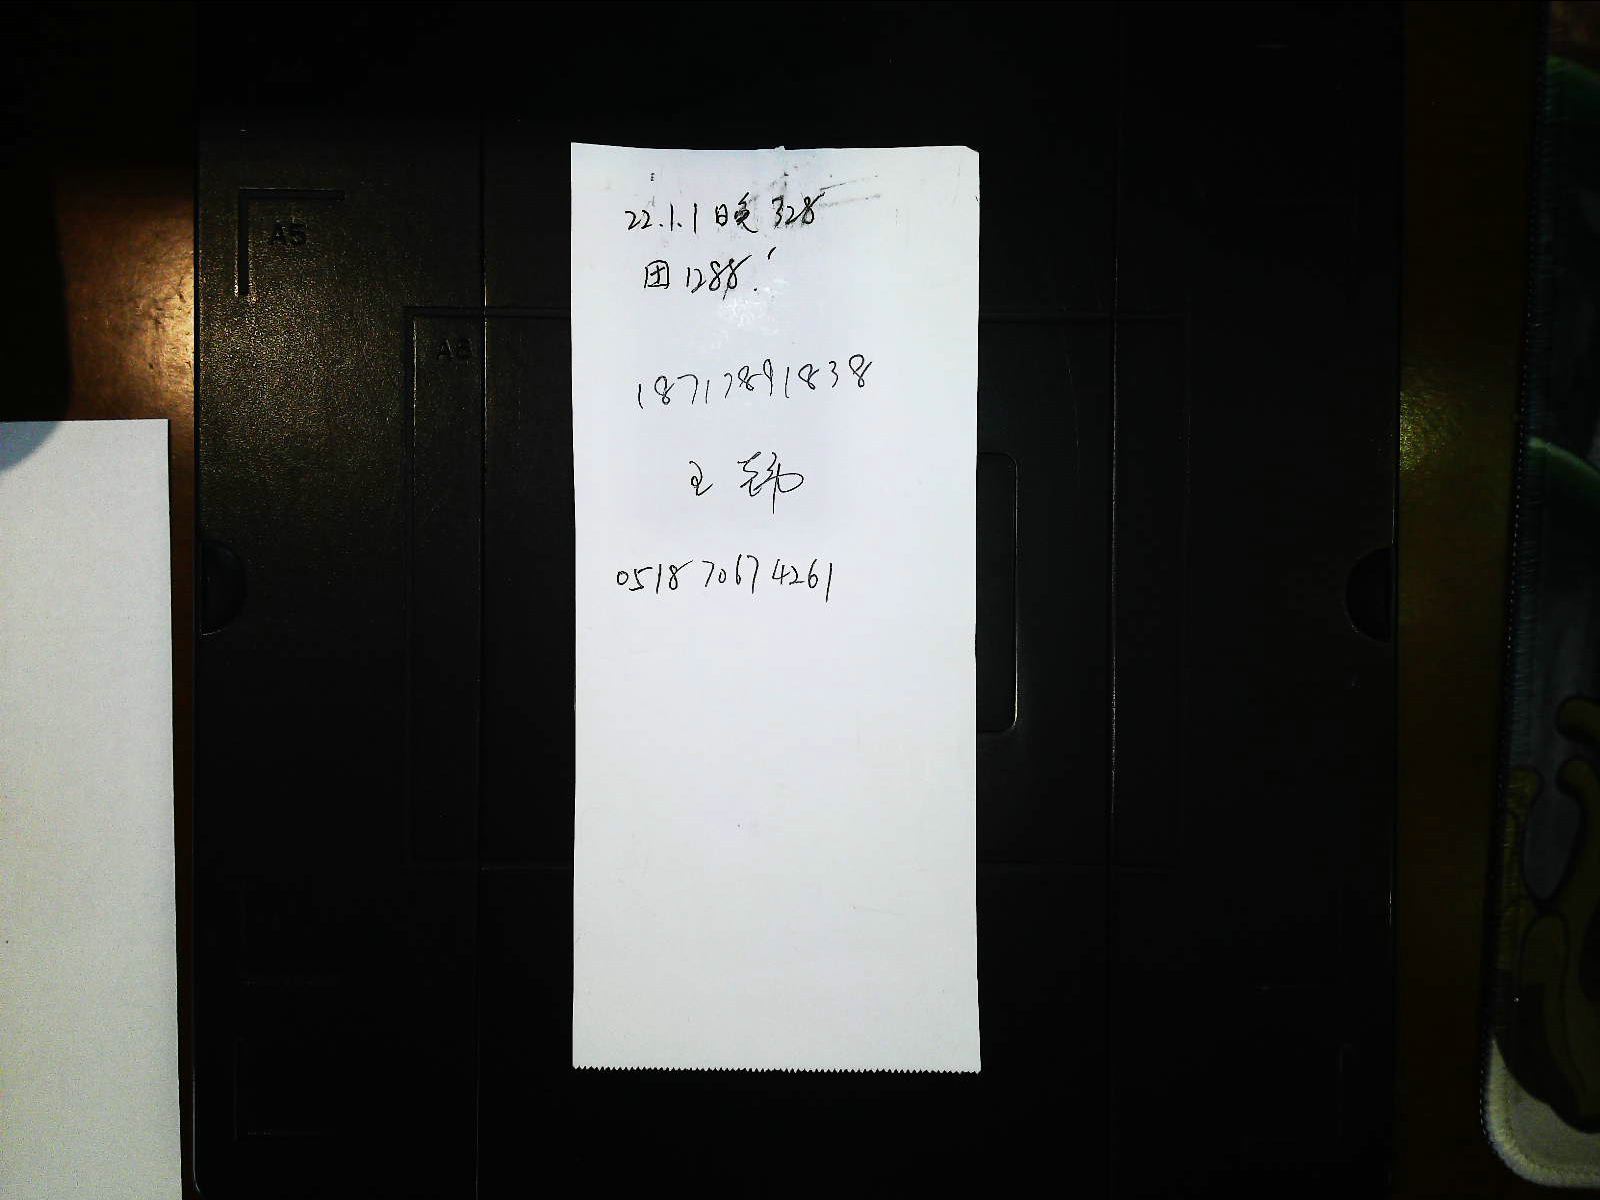 22.1.1晚328
团1288.
18717891838
王
0518 7067 4261
A5